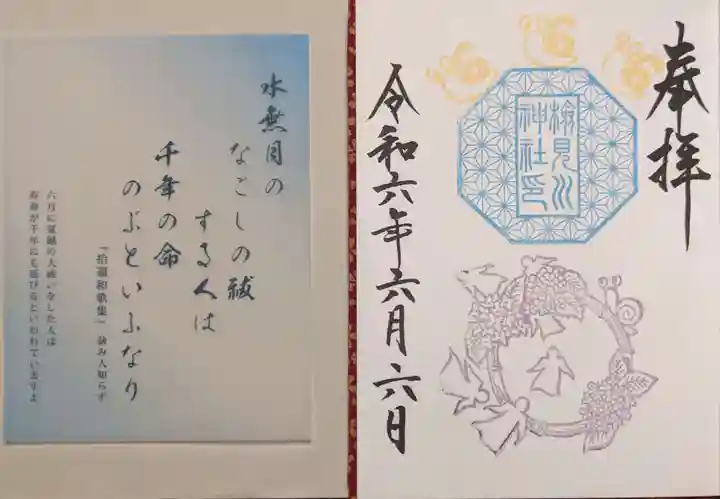 奉拝
検見川神社印
令和六年六月六日
水無月の
なごしの祓
する人は
千年の命
のぶといふなり
「拾遺和歌集」 詠み人知らず
六月に夏越の大祓いをした人は
寿命が千年にも延びるといわれていますよ